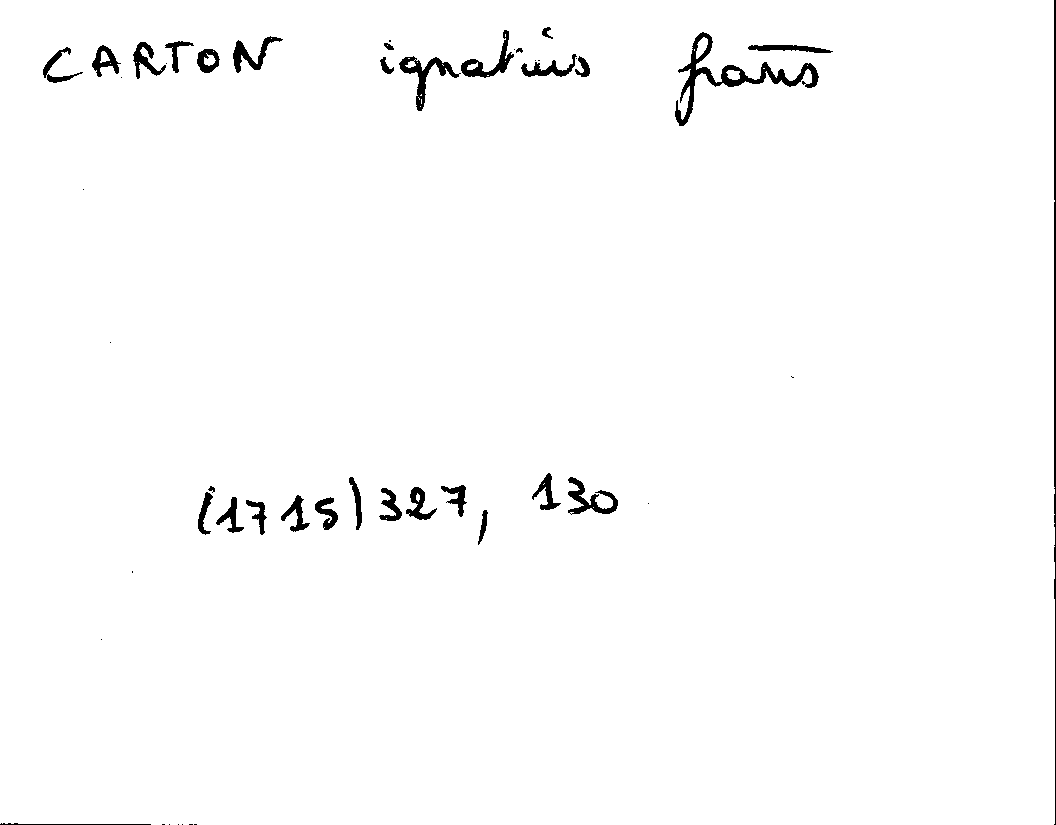 CARTON ignatius frans
(1715) 327, 130